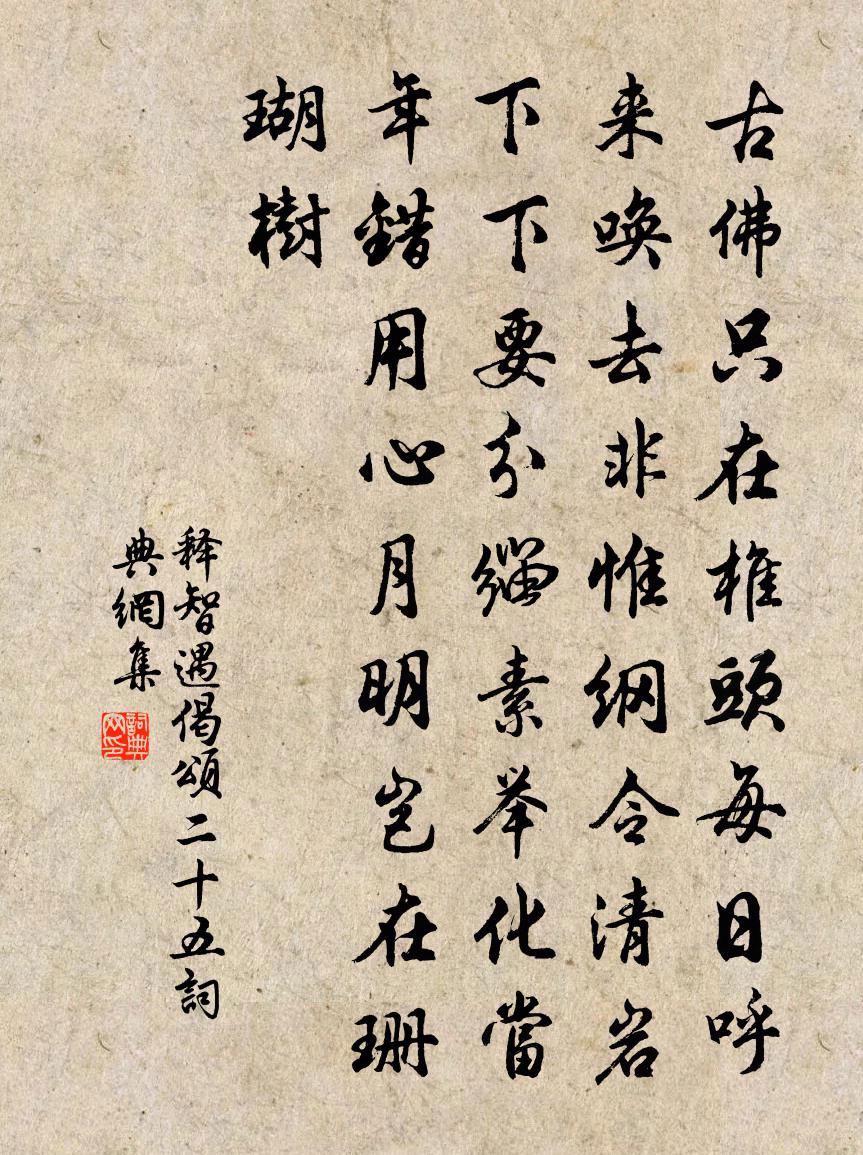 古佛只在権頭每日呼
来唤去非惟纲令清岩
下下要分缁素举化當
年錯用心月明岂在珊
瑚樹
释智遇偈頌二十五詞
典網集
詞典
网印